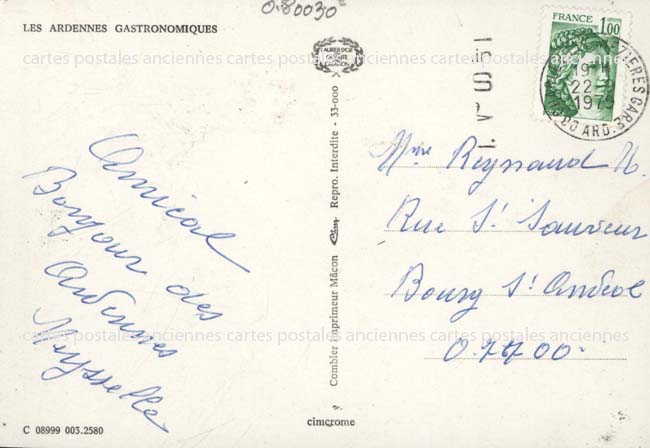 0.80030
LES ARDENNES GASTRONOMIQUES
FRANCE
1,00
19 -
22 -
1979
ARD.
Amical
Bonjour des
Ardennes
Combier Imprimeur Mâcon Repro. Interdite - 33-000
Mme Reynaud
Rue St Sauveur
Bourg St Andéol
07700.
cartes postales anciennes cartes postales anciennes cartes postales anciennes
cartes postales anciennes cartes postales anciennes cartes postales anciennes
C 08999 003.2580
cimcrome